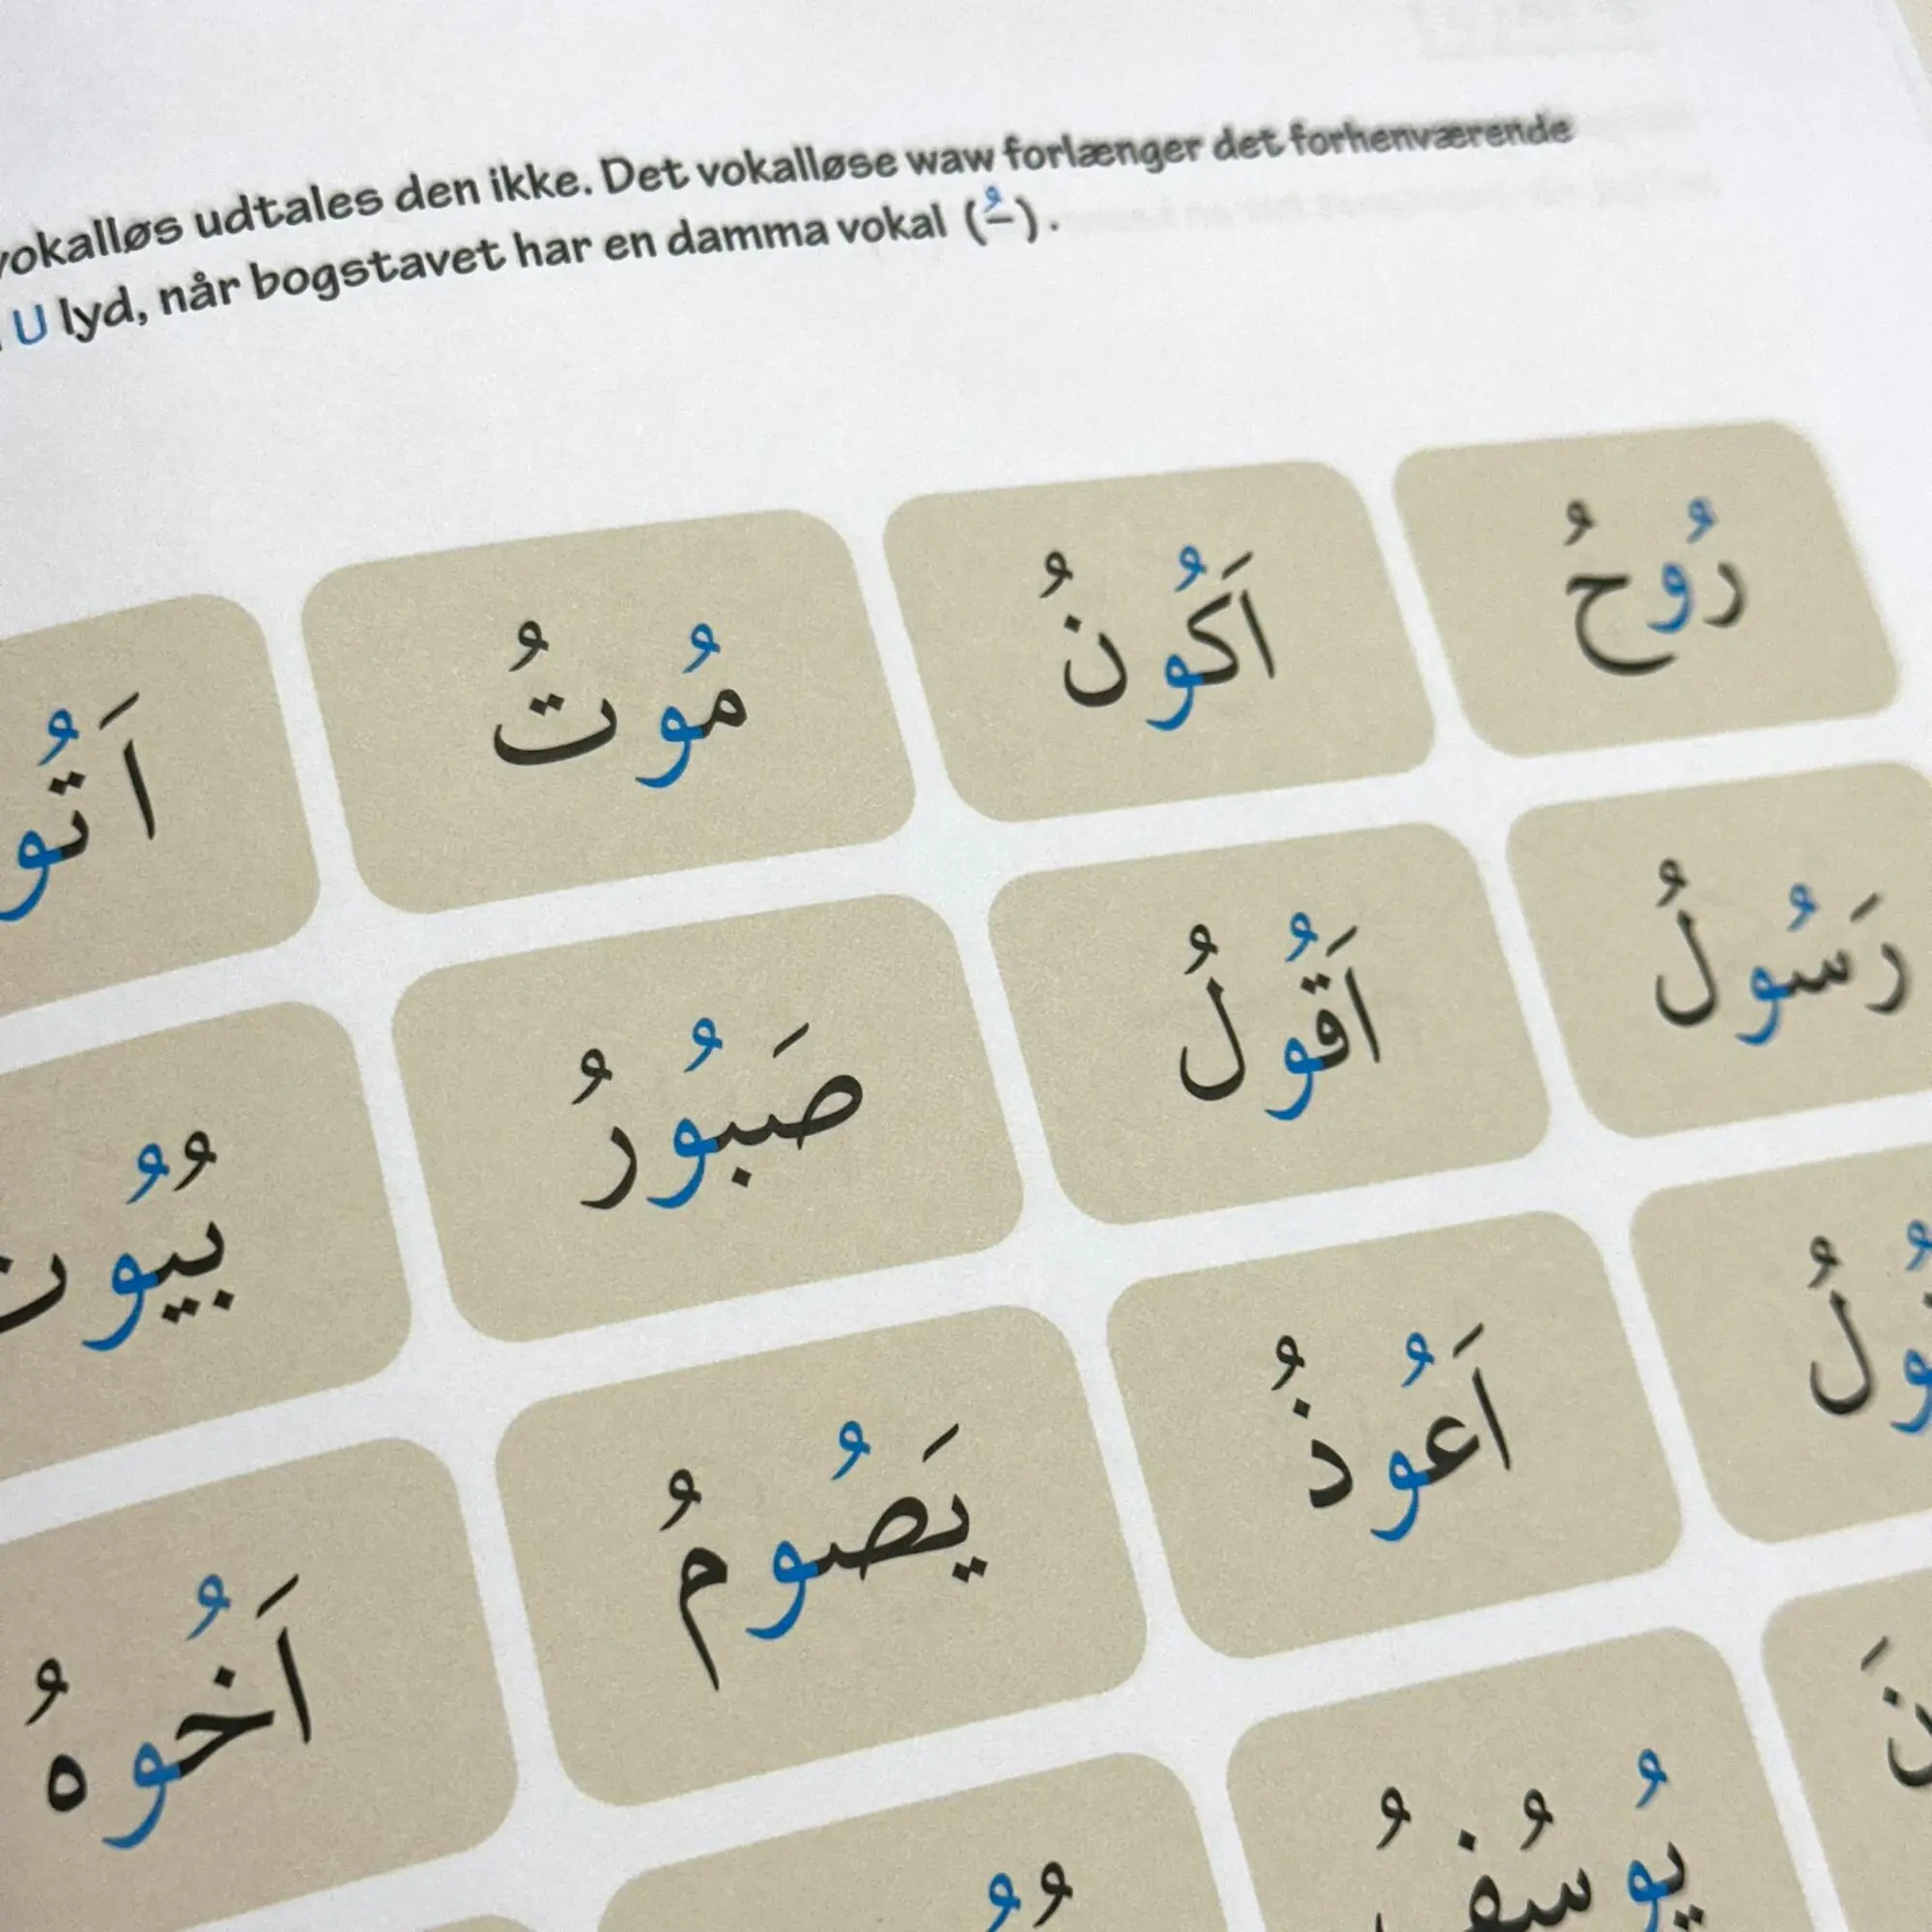 vokalløs udtales den ikke. Det vokalløse waw forlænger det forhenværende
U lyd, når bogstavet har en damma vokal (ـُ).
رُوحُ اَكُونُ مُوتُ اَتُو
رَسُولُ اَقُولُ صَبُورُ بُيُوت
ُولُ اَعُوذُ يَصُومُ اَخُوهُ
نَ يُوسُفُ